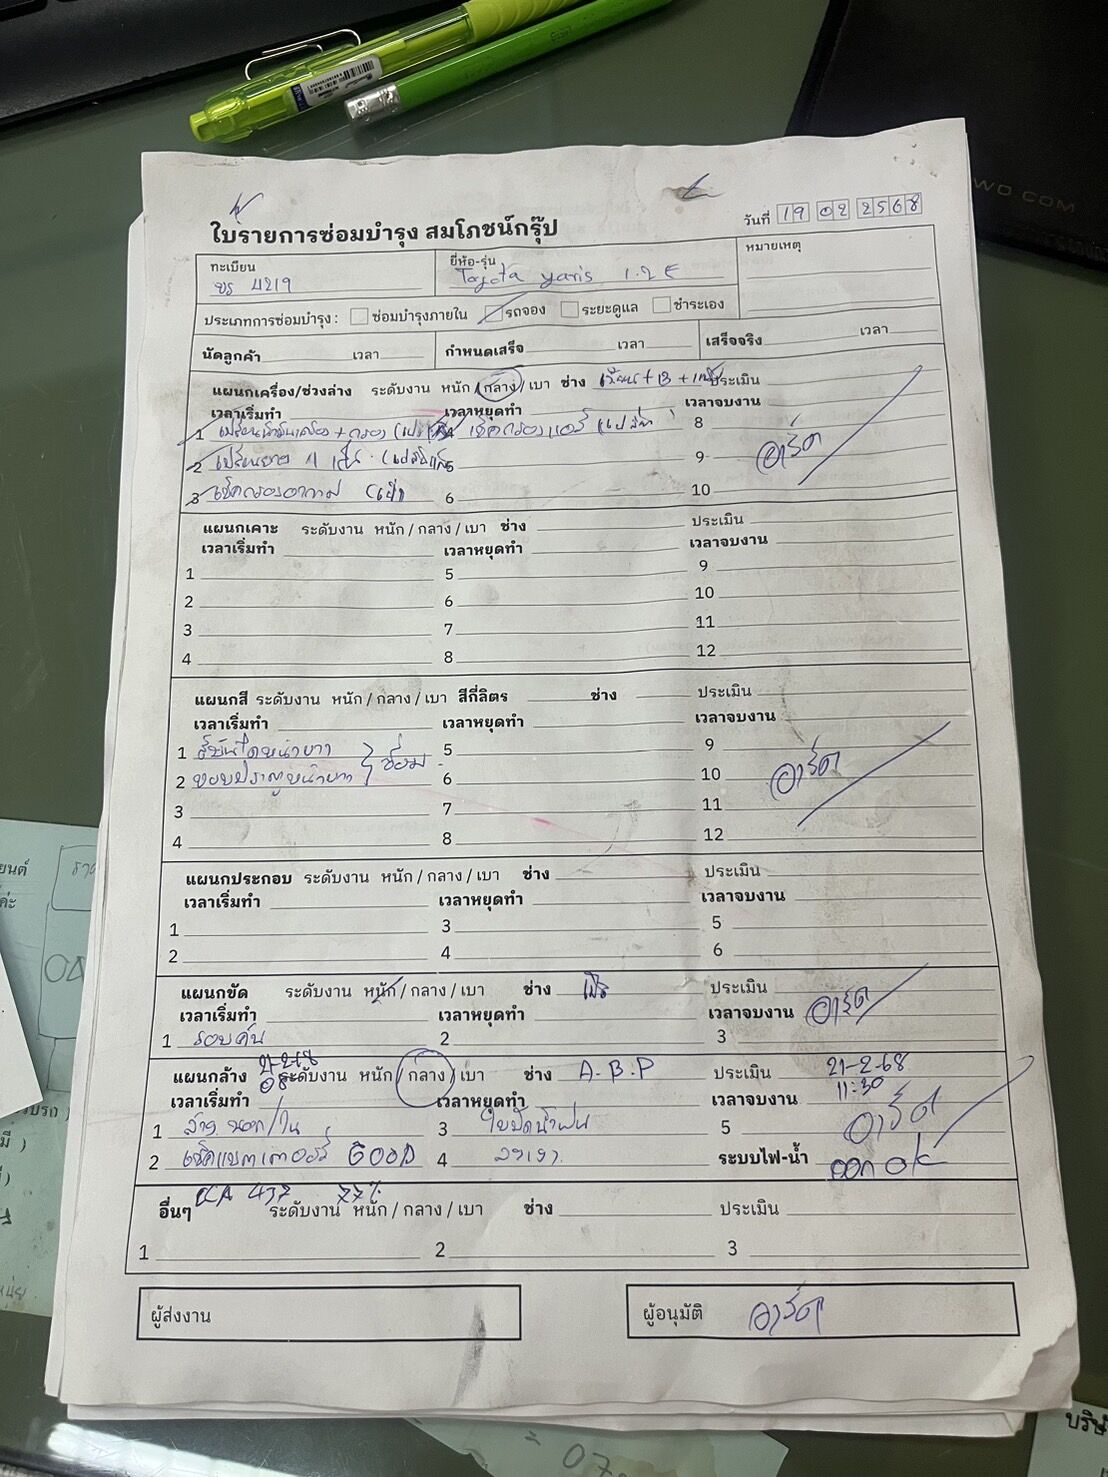 ใบรายการซ่อมบำรุง สมโภชน์กรุ๊ป
วันที่ 19 02 2568
ทะเบียน
ขร 4219
ยี่ห้อ-รุ่น
Toyota yaris 1.2 E
หมายเหตุ
ประเภทการซ่อมบำรุง : ซ่อมบำรุงภายใน รถจอง ระยะดูแล ชำระเอง
นัดลูกค้า เวลา กำหนดเสร็จ เวลา เสร็จจริง เวลา
แผนกเครื่อง/ช่วงล่าง ระดับงาน หนัก / กลาง / เบา ช่าง ประเมิน
เวลาเริ่มทำ เวลาหยุดทำ เวลาจบงาน
1 เปลี่ยนน้ำมันเครื่อง + กรอง เช็คกรองแอร์ 8
2 เปลี่ยนยาง 4 เส้น 5 9 อาร์ต
3 เช็คกรองอากาศ 6 10
แผนกเคาะ ระดับงาน หนัก / กลาง / เบา ช่าง ประเมิน
เวลาเริ่มทำ เวลาหยุดทำ เวลาจบงาน
1 5 9
2 6 10
3 7 11
4 8 12
แผนกสี ระดับงาน หนัก / กลาง / เบา สีกี่ลิตร ช่าง ประเมิน
เวลาเริ่มทำ เวลาหยุดทำ เวลาจบงาน
1 5 9
2 ขอบประตูหน้าขวา ซ่อม 6 10 อาร์ต
3 7 11
4 8 12
แผนกประกอบ ระดับงาน หนัก / กลาง / เบา ช่าง ประเมิน
เวลาเริ่มทำ เวลาหยุดทำ เวลาจบงาน
1 3 5
2 4 6
แผนกขัด ระดับงาน หนัก / กลาง / เบา ช่าง ประเมิน
เวลาเริ่มทำ เวลาหยุดทำ เวลาจบงาน อาร์ต
1 รอบคัน 2 3
แผนกล้าง 21-2-68 ระดับงาน หนัก / กลาง / เบา ช่าง A.B.P ประเมิน 21-2-68
เวลาเริ่มทำ เวลาหยุดทำ เวลาจบงาน 11:30
1 ล้าง นอก/ใน 3 ใบปัดน้ำฝน 5 อาร์ต
2 เช็คแบตเตอรี่ GOOD 4 ระบบไฟ-น้ำ ออก ok
CCA 437 77%
อื่นๆ ระดับงาน หนัก / กลาง / เบา ช่าง ประเมิน
1 2 3
ผู้ส่งงาน
ผู้อนุมัติ อาร์ต